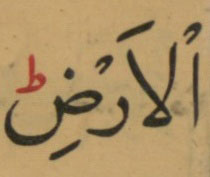 اْلاَرْضِ ط